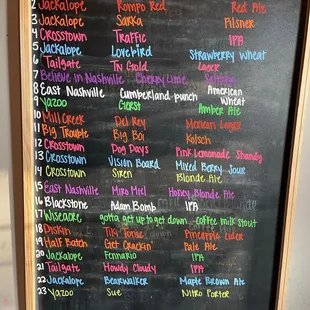 2 Jackalope Rompo Red Red Ale
3 Jackalope Sarka Pilsner
4 Crosstown Traffic IPA
5 Jackalope Lovebird Strawberry Wheat
6 Tailgate TN Gold Lager
7 Believe in Nashville Cherry Lime Seltzer
8 East Nashville Cumberland punch American Wheat
9 Yazoo Gerst Amber Ale
10 Mill Creek Del Rey Mexican Lager
11 Big Trouble Big Boi Kolsch
12 Crosstown Dog Days Pink Lemonade Shandy
13 Crosstown Vision Board Mixed Berry Sour
14 Crosstown Siren Blonde Ale
15 East Nashville Miro Miel Honey Blonde Ale
16 Blackstone Adam Bomb IPA
17 Wiseacre gotta get up to get down coffee milk stout
18 Diskin Tiki Tonic Pineapple Cider
19 Half Batch Get Crackin' Pale Ale
20 Jackalope Fennario IPA
21 Tailgate Howdy Cloudy IPA
22 Jackalope Bearwalker Maple Brown Ale
23 Yazoo Sue Nitro Porter